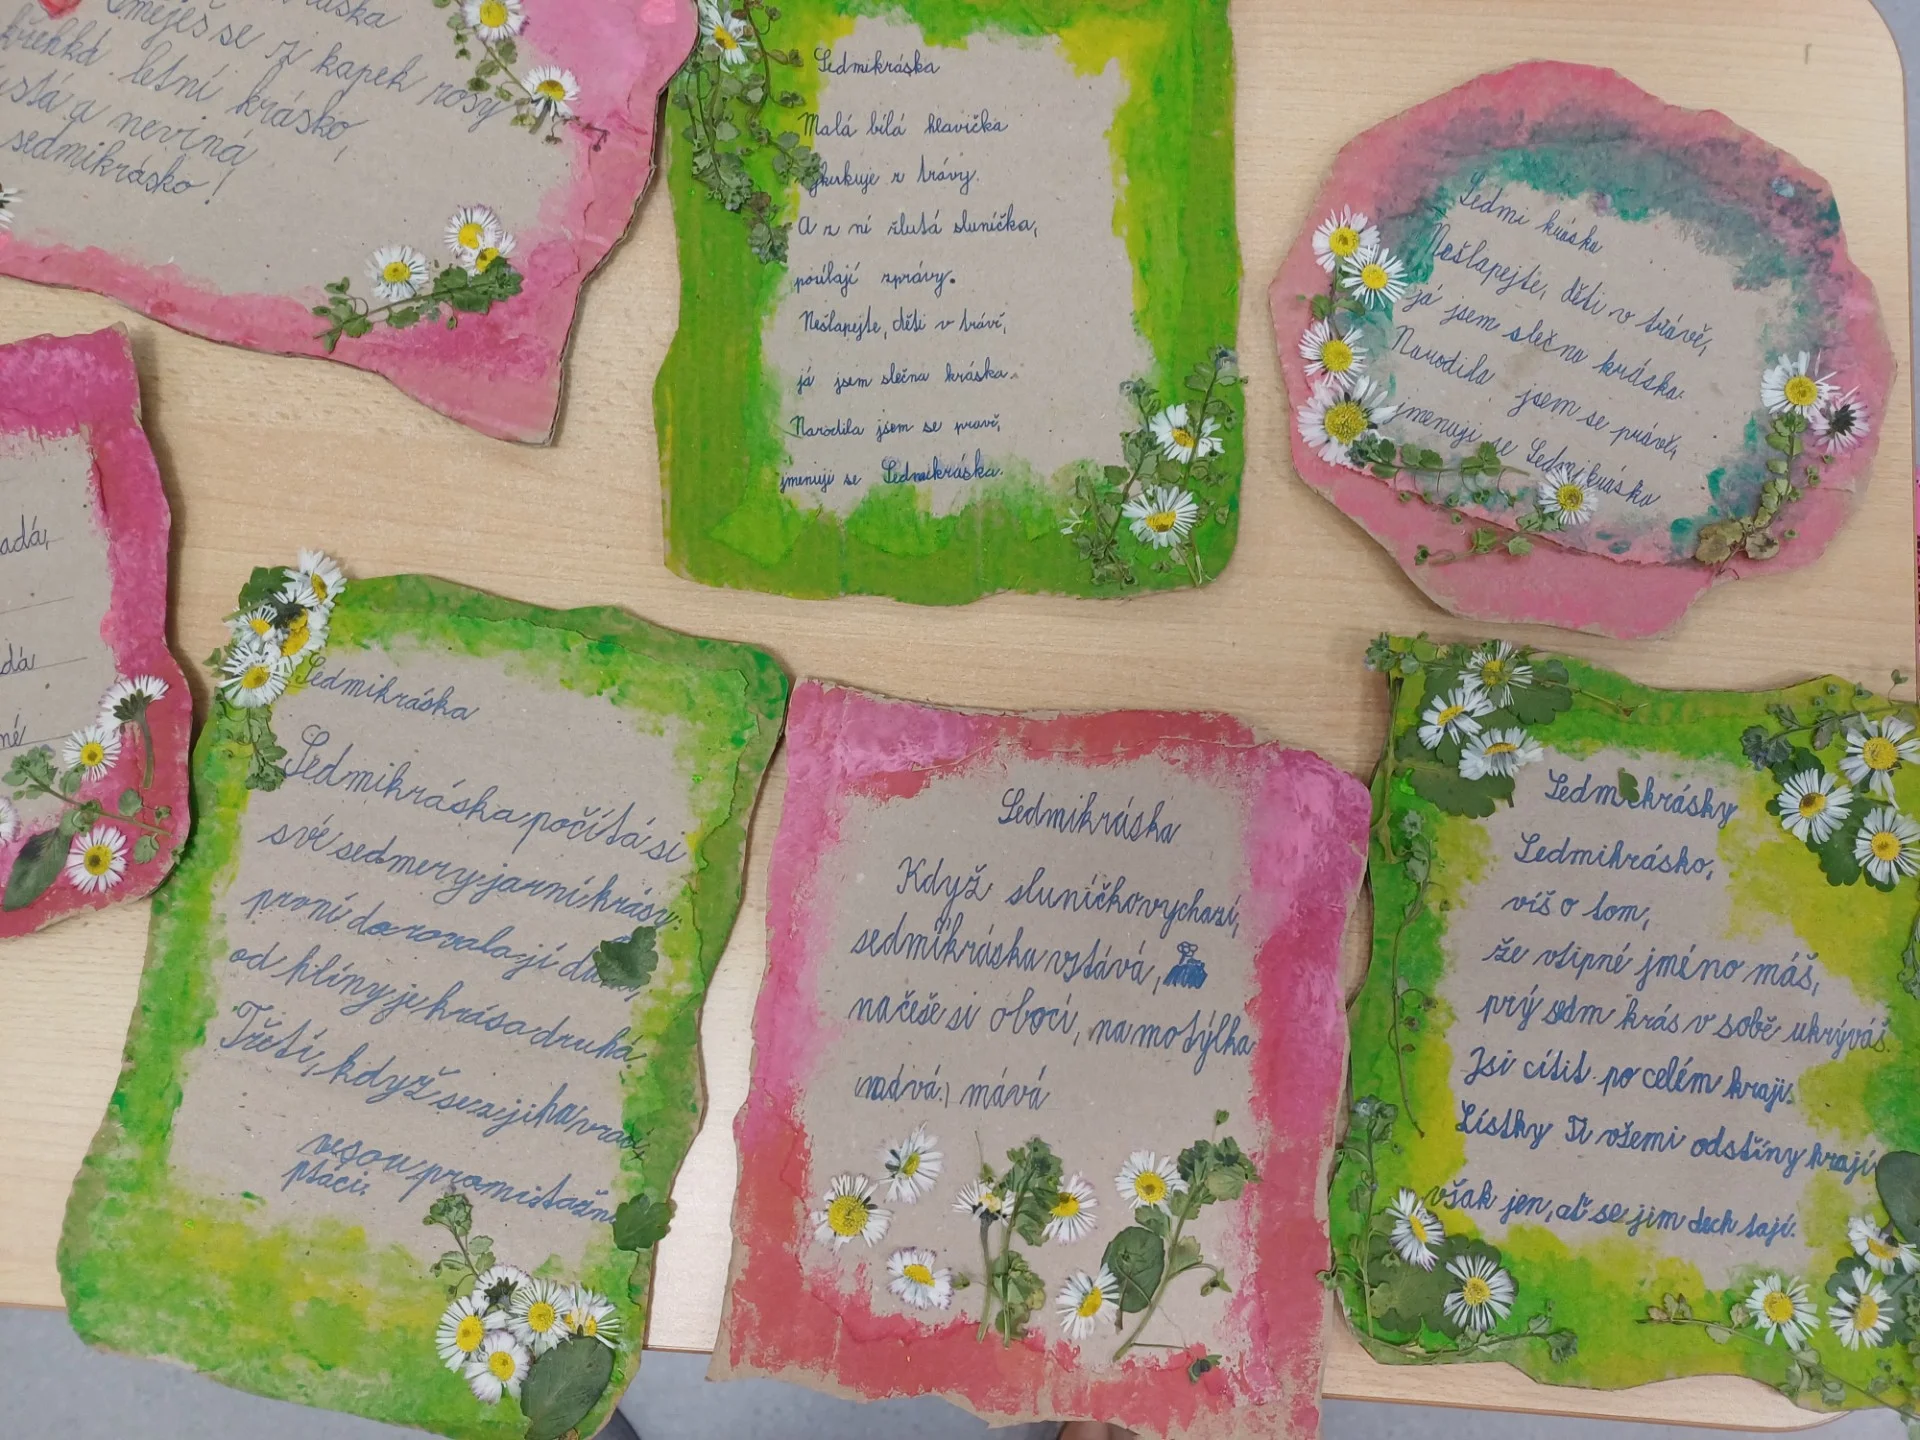 kráska
směješ se z kapek rosy
křehká letní krásko,
a neviná
sedmikrásko!
Sedmikráska
Malá bílá hlavička
z trávy.
A z ní žlutá sluníčka,
posílají zprávy.
Nešlapejte, děti v trávě,
já jsem slečna kráska.
Narodila jsem se pravě,
jmenuji se Sedmikráska.
Sedmi kráska
Nešlapejte, děti v trávě,
já jsem slečna kráska.
Narodila jsem se právě,
jmenuji se Sedmikráska
adá,
dá
né
Sedmikráska
Sedmikráska počítá si
své sedmery jarní krásy:
první darovala jí
od hlíny je krása druhá.
Třetí, když se z jihu vrací
vesou
ptáci.
Sedmikráska
Když sluníčko vychází,
sedmikráska vstává,
načeše si obočí, na motýlka
mává
Sedmikrásky
Sedmikrásko,
víš o tom,
že vtipné jméno máš,
prý sedm krás v sobě ukrýváš.
Jsi cítit po celém kraji.
Lístky Ti všemi odstíny hrají
však jen, ať se jim dech tají.